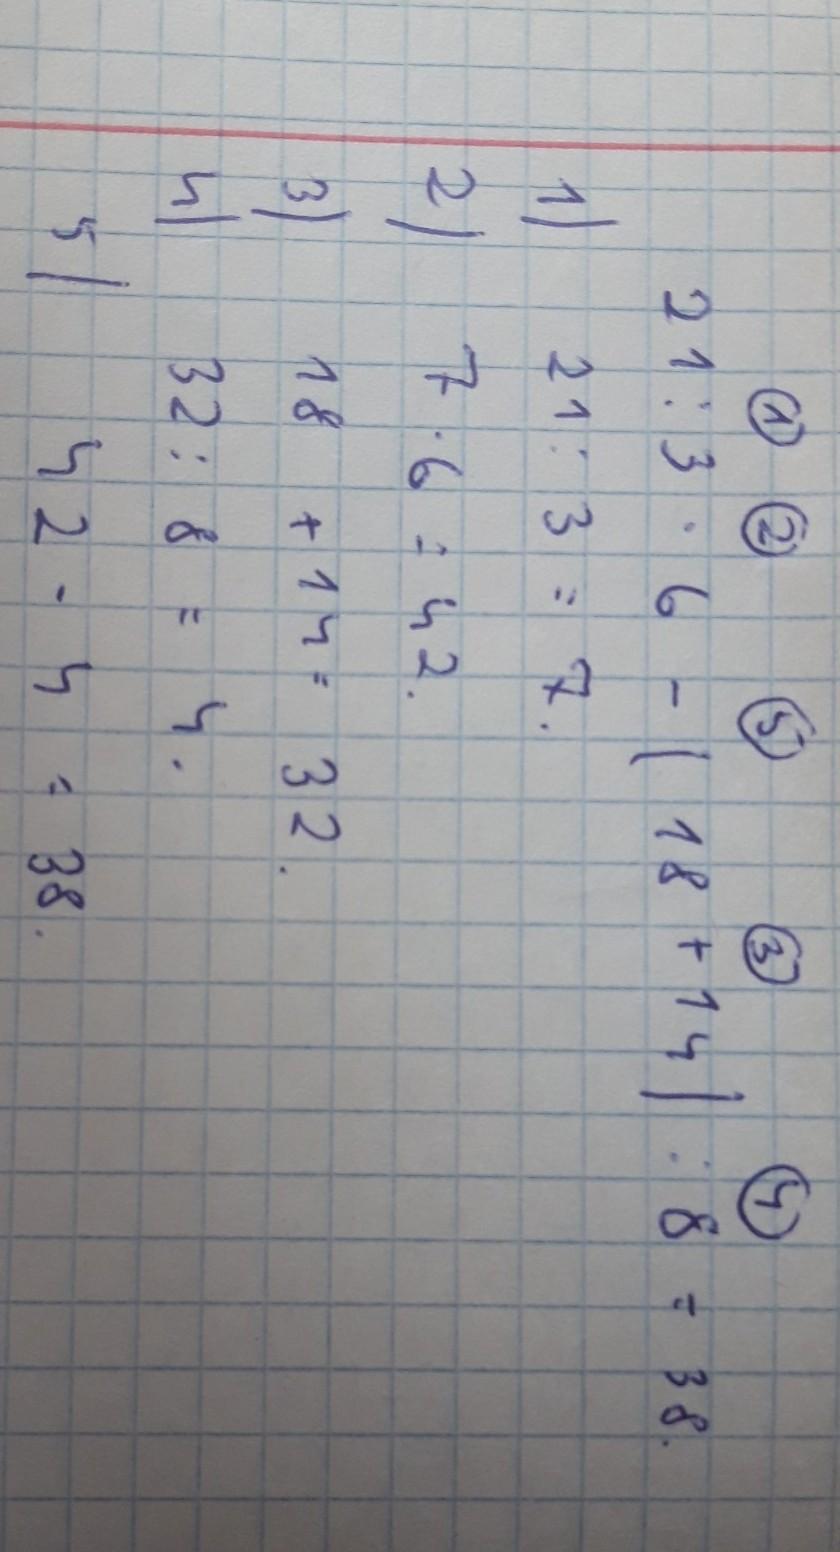 ① ② ⑤ ③ ④
21 : 3 · 6 - ( 18 + 14 ) : 8 = 38.
1) 21 : 3 = 7.
2) 7 · 6 = 42.
3) 18 + 14 = 32.
4) 32 : 8 = 4.
5) 42 - 4 = 38.